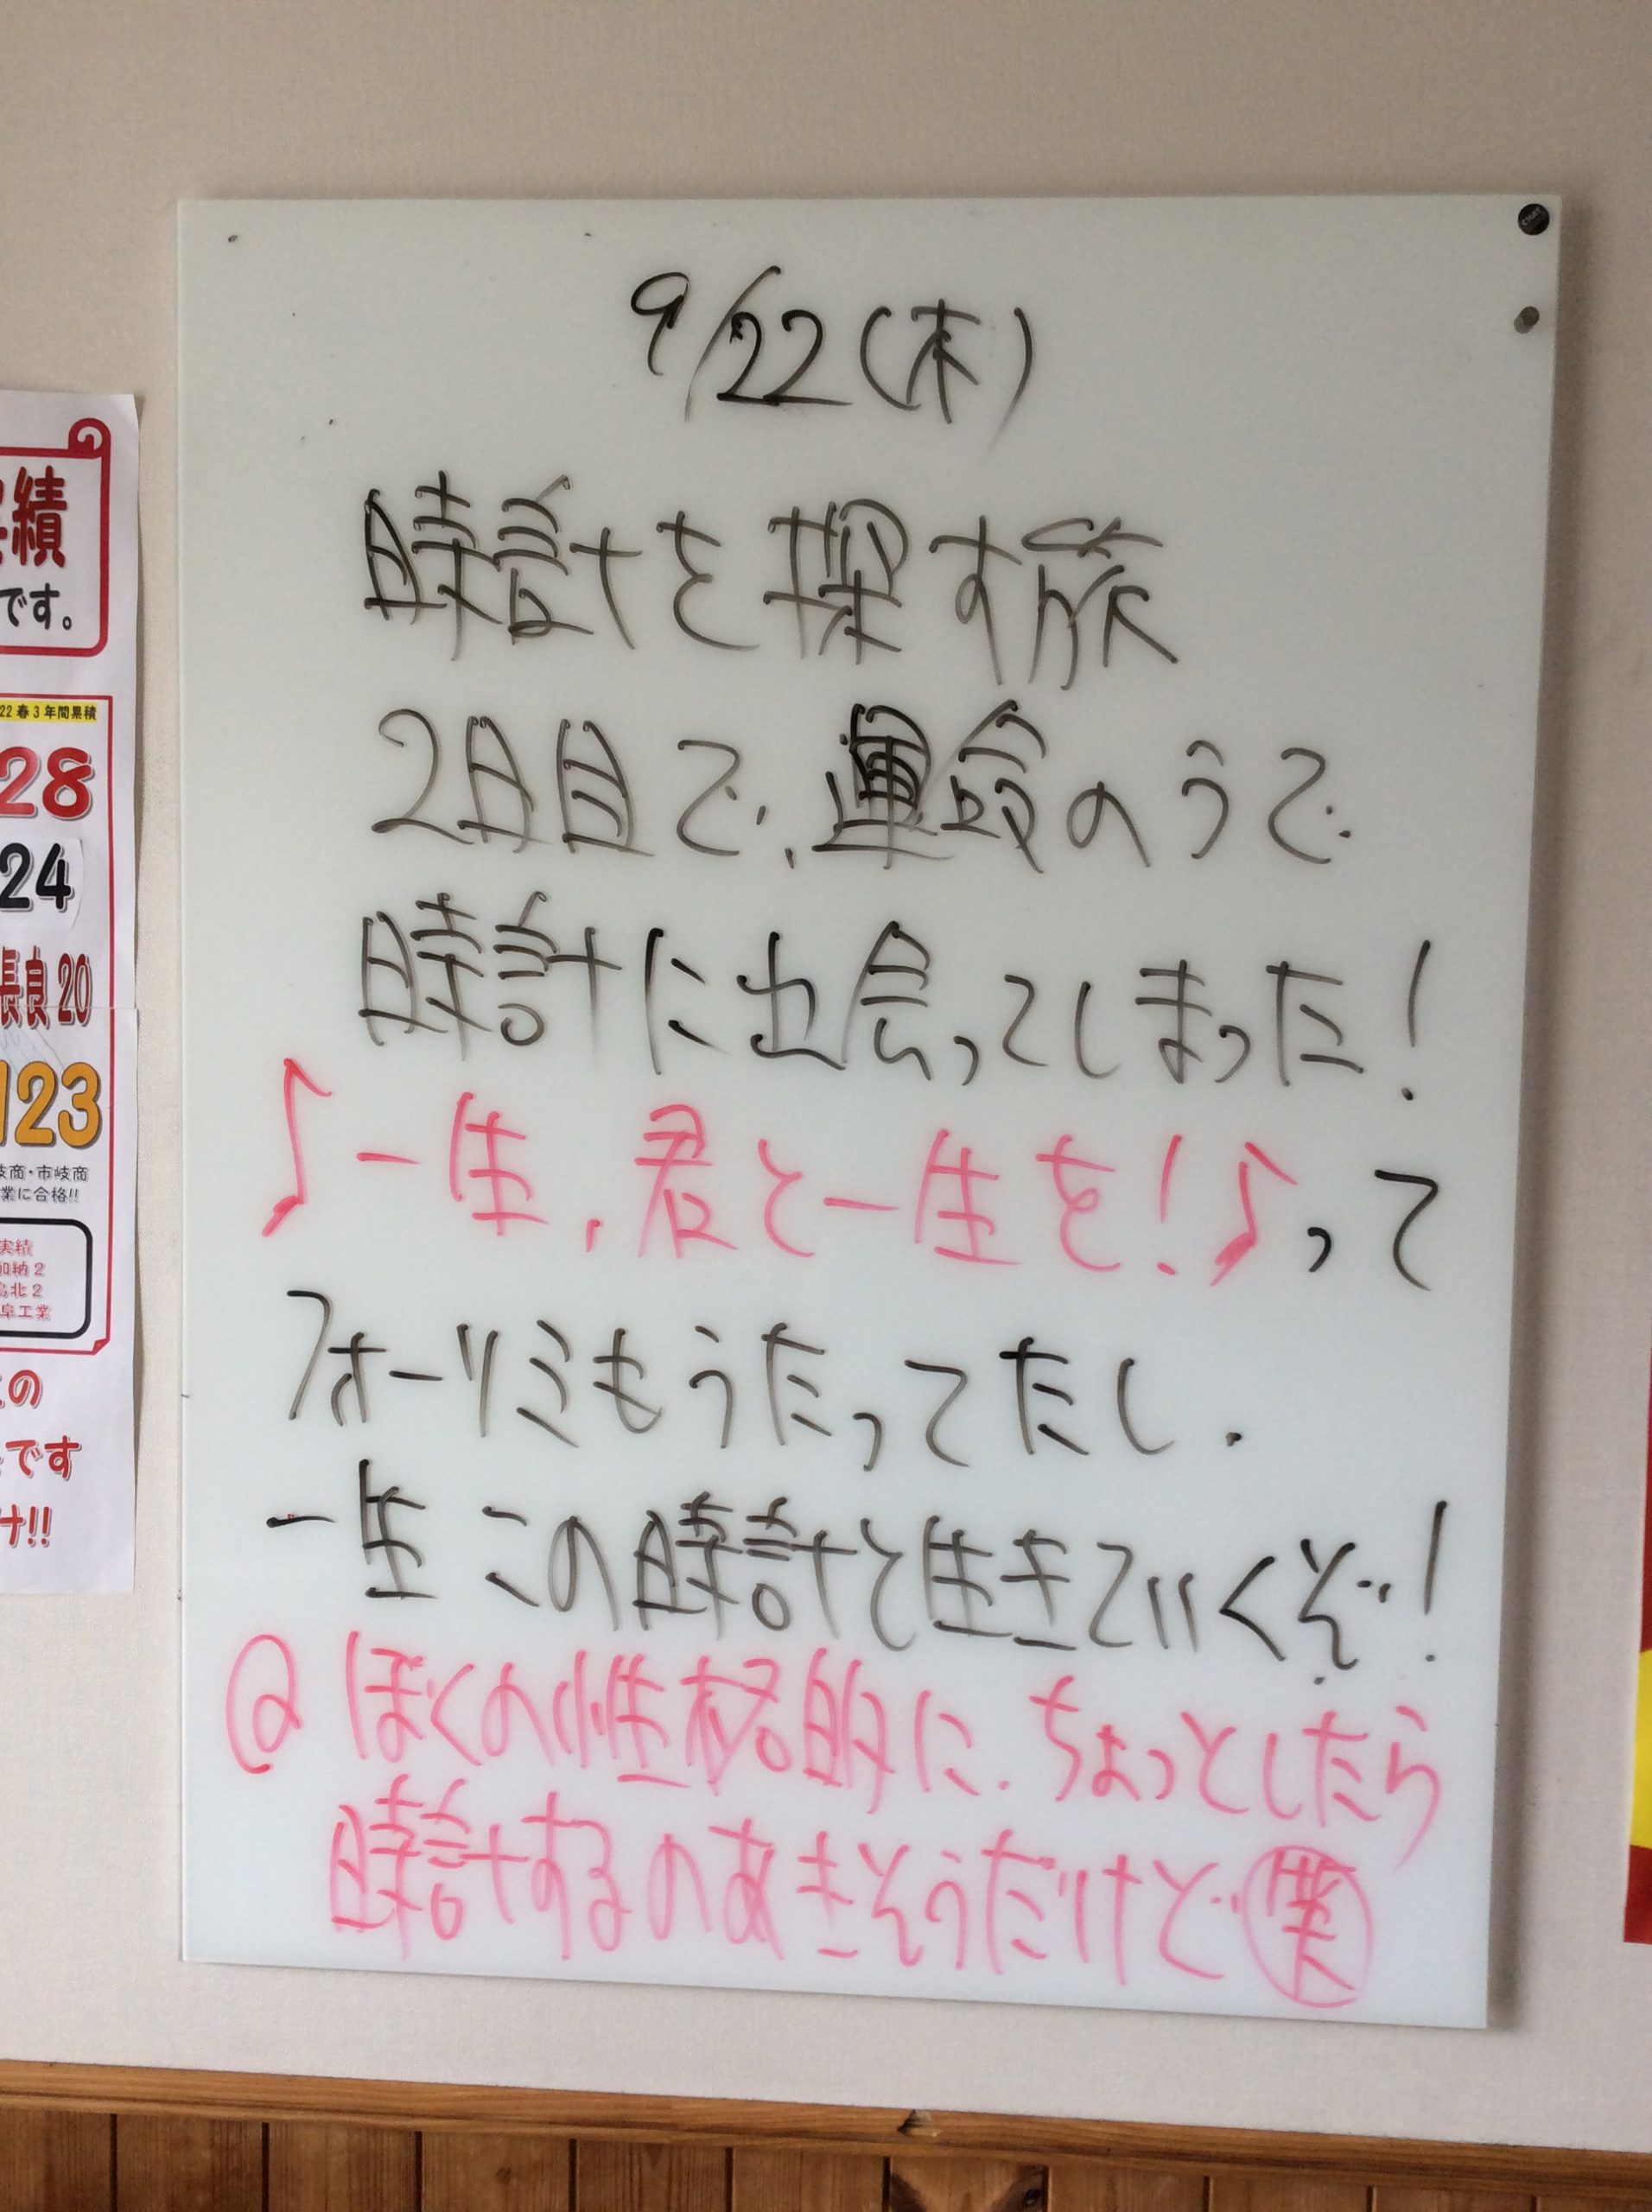 9/22(木)
時計を探す旅
2日目で、運命のうで
時計に出会ってしまった!
♪一生、君と一生を!♪って
フォーリミもうたってたし、
一生この時計と生きていくぞ!
@ぼくの性格的に、ちょっとしたら
時計するのあきそうだけど笑
績
です。
22春3年間累積
28
24
長良20
123
岐商・市岐商
業に合格!!
実績
加納2
島北2
阜工業
の
です
け!!